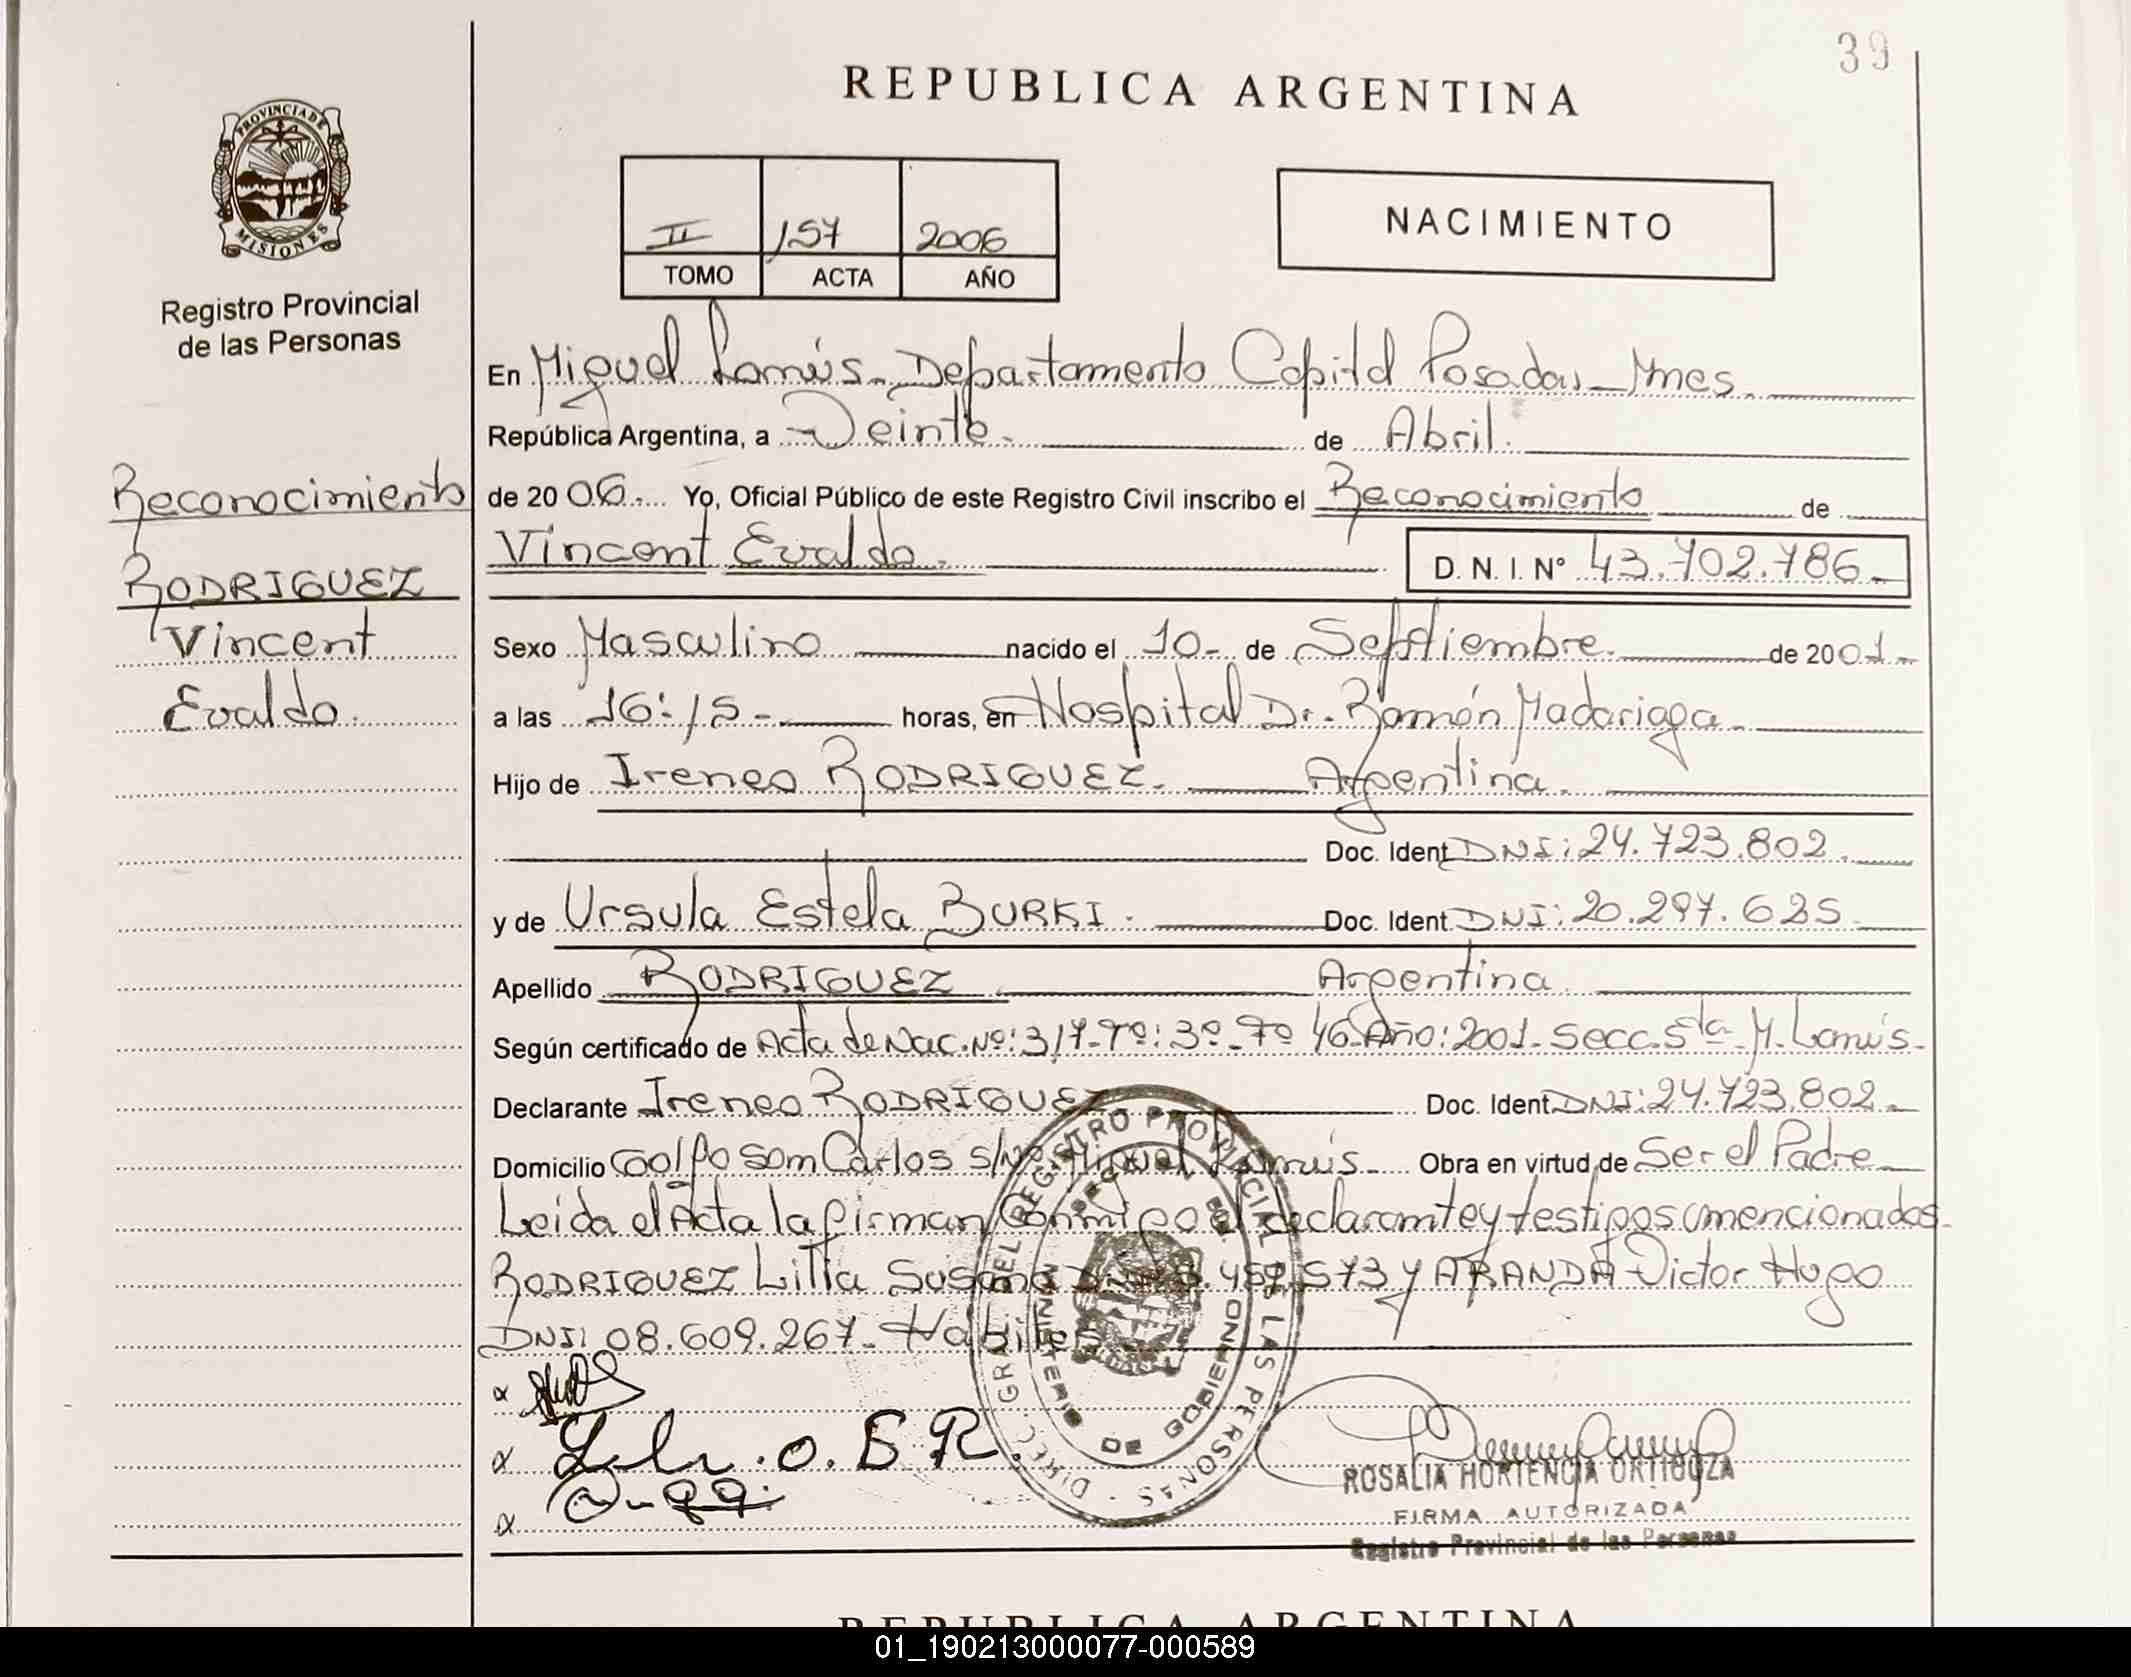 39
REPUBLICA ARGENTINA
PROVINCIA DE
MISIONES
Registro Provincial
de las Personas
II 157 2006
TOMO ACTA AÑO
NACIMIENTO
En Miguel Lanús. Departamento Capital Posadas - Mnes.
República Argentina, a Veinte. de Abril.
de 2006. Yo, Oficial Público de este Registro Civil inscribo el Reconocimiento de
Vincent Evaldo. D. N. I. Nº 43.702.786.
Reconocimiento
RODRIGUEZ
Vincent
Evaldo.
Sexo Masculino nacido el 10- de Septiembre. de 2001.
a las 16:15- horas, en Hospital Dr. Ramón Madariaga.
Hijo de Ireneo RODRIGUEZ. Argentina.
Doc. Ident. DNI: 24.723.802.
y de Ursula Estela BURKI. Doc. Ident. DNI: 20.297.635.
Apellido RODRIGUEZ Argentina.
Según certificado de Acta de Nac. Nº: 317- Tº: 3º- Fº 46- Año: 2001- Secc. 5ta- M. Lanús.
Declarante Ireneo RODRIGUEZ Doc. Ident. DNI: 24.723.802.
Domicilio Golfo San Carlos s/Nº. Miguel Lanús. Obra en virtud de Ser el Padre
Leida el Acta la firman conmigo el declarante y testigos mencionados.
RODRIGUEZ Lilia Susana 457.573 y ARANDA Victor Hugo
DNI: 08.609.267- Habiles
DIREC. GRAL. DEL REGISTRO PROVINCIAL DE LAS PERSONAS
MINISTERIO DE GOBIERNO
ROSALIA HORTENCIA ORTIGOZA
FIRMA AUTORIZADA
Registro Provincial de las Personas
REPUBLICA ARGENTINA
01_190213000077-000589